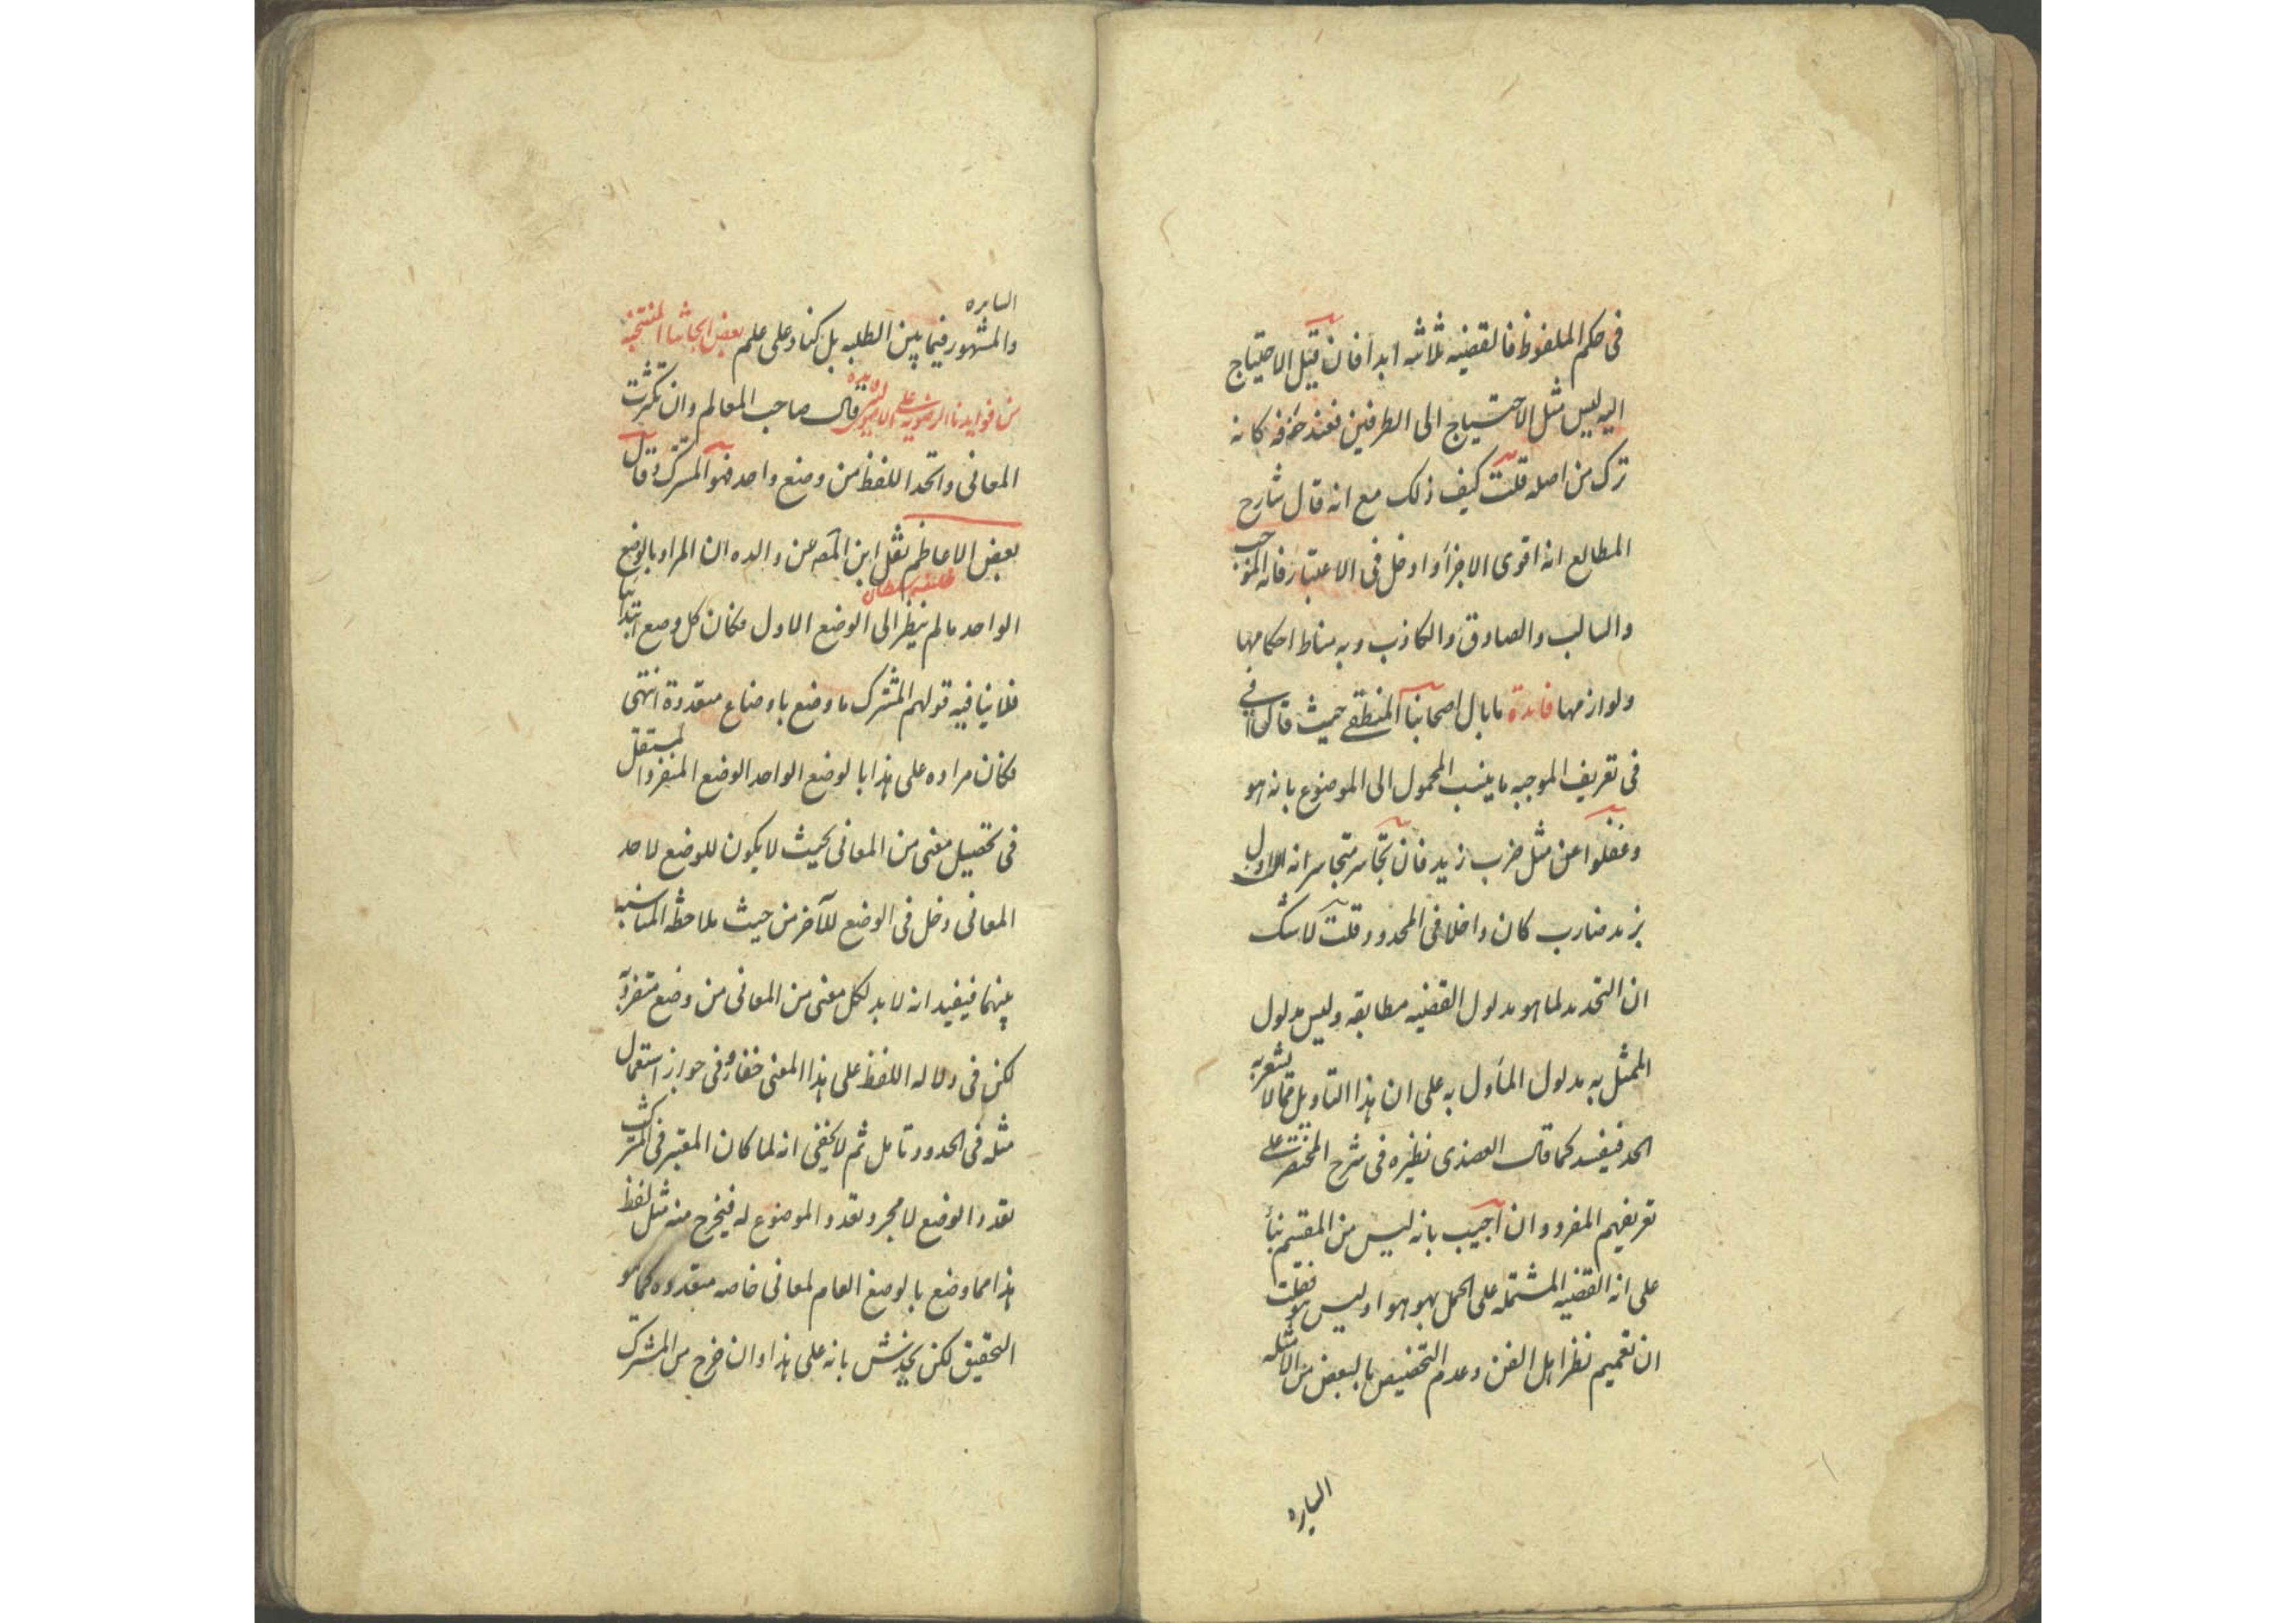 فى حكم الملفوظ فالقضيه ثلاثه ابدا فان قيل الاحتياج
اليه ليس مثل الاحتياج الى الطرفين فعند حذفه كانه
ترك من اصله قلت كيف ذلك مع انه قال شارح
المطالع انه اقوى الاجزأ وادخل فى الاعتبار فانه الموجب
والسالب والصادق والكاذب وبه مناط احكامها
ولوازمها فايدة ما بال اصحابنا المنطقى حيث قالوا
فى تعريف الموجبه ما ينسب المحمول الى الموضوع بانه هو
وغفلوا عن مثل ضرب زيد فان تجاسر متجاسر انه اول
بزيد ضارب كان داخلا فى المحدود قلت لا شك
ان التحديد لما هو مدلول القضيه مطابقه وليس مدلول
الممثل به مدلول المأول به على ان هذا التاويل مما لا يشعر به
الحد فيفسد كما قال العضدى نظيره فى شرح المختصر على
تعريفهم المفرد وان اجيب بانه ليس من المقسم بنأ
على انه القضيه المشتمله على الحمل بهو هو او ليس هو قلت
ان تعميم نظر اهل الفن وعدم التخصيص بالبعض من الامثله
السايره
السايره
والمشهور فيما بين الطلبه بل كناد على علم بعض ابحاثنا المنتخبه
من فوايدنا الرضويه على قال صاحب المعالم وان تكثرت
المعانى واتحد اللفظ من وضع واحد فهو المشترك وقال
بعض الاعاظم نقل ابن المصـ عن والده ان المراد بالوضع
خليفه سلطان
الواحد ما لم ينظر الى الوضع الاول فكان كل وضع ابتدائيا
فلا ينافيه قولهم المشترك ما وضع باوضاع متعددة انتهى
فكان مراده على هذا بالوضع الواحد الوضع المنفرد المستقل
فى تحصيل معنى من المعانى بحيث لا يكون للوضع لاحد
المعانى دخل فى الوضع للآخر من حيث ملاحظه المناسبه
بينهما فيفيد انه لا بد لكل معنى من المعانى من وضع متفرد
لكن فى دلاله اللفظ على هذا المعنى خفاء وفى جواز استعمال
مثله فى الحدود تامل ثم لا يخفى انه لما كان المعتبر فى المشترك
تعدد الوضع لا مجرد تعدد الموضوع له فيخرج منه مثل لفظ
هذا مما وضع بالوضع العام لمعانى خاصه متعدده كما هو
التحقيق لكن يخدش بانه على هذا وان خرج من المشترك